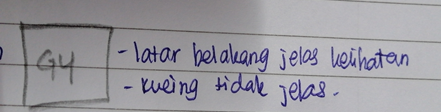 G4
- latar belakang jelas kelihatan
- kueing tidak jelas.